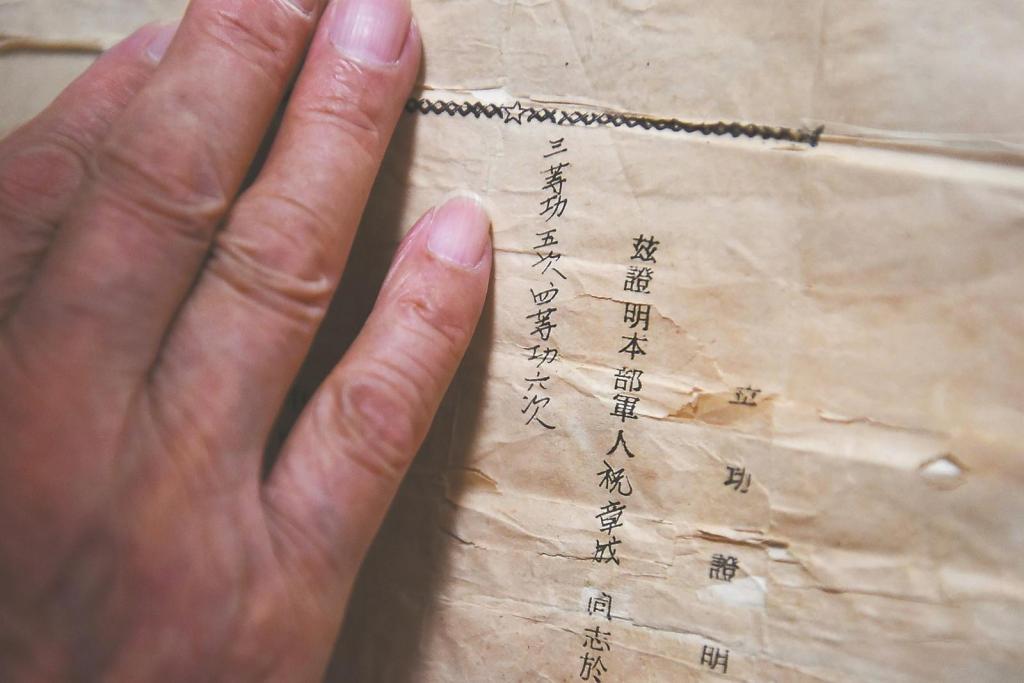 立功證明
茲證明本部軍人祝章成同志於
三等功五次四等功六次